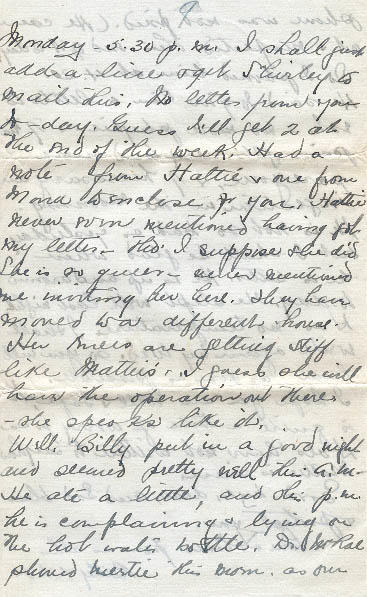 9
Monday - 5.30 p.m. I shall just
add a line & get Shirley to
mail this. No letter from you
to-day. Guess I'll get 2 at
the end of the week. Had a
note from Hattie & one from
Mona to enclose for you. Hattie
never even mentioned having got
my letter - tho' I suppose she did
She is so queer - never mentioned
me inviting her here. They have
moved to a different house.
Her knees are getting stiff
like Mathis'. I guess she will
have the operation out there
- she speaks like it.
Well, Billy put in a good night
and seemed pretty well this a.m.
He ate a little, and this p.m.
he is complaining & lying on
the hot water bottle. Dr. McRae
phoned Mertie this morn. as our